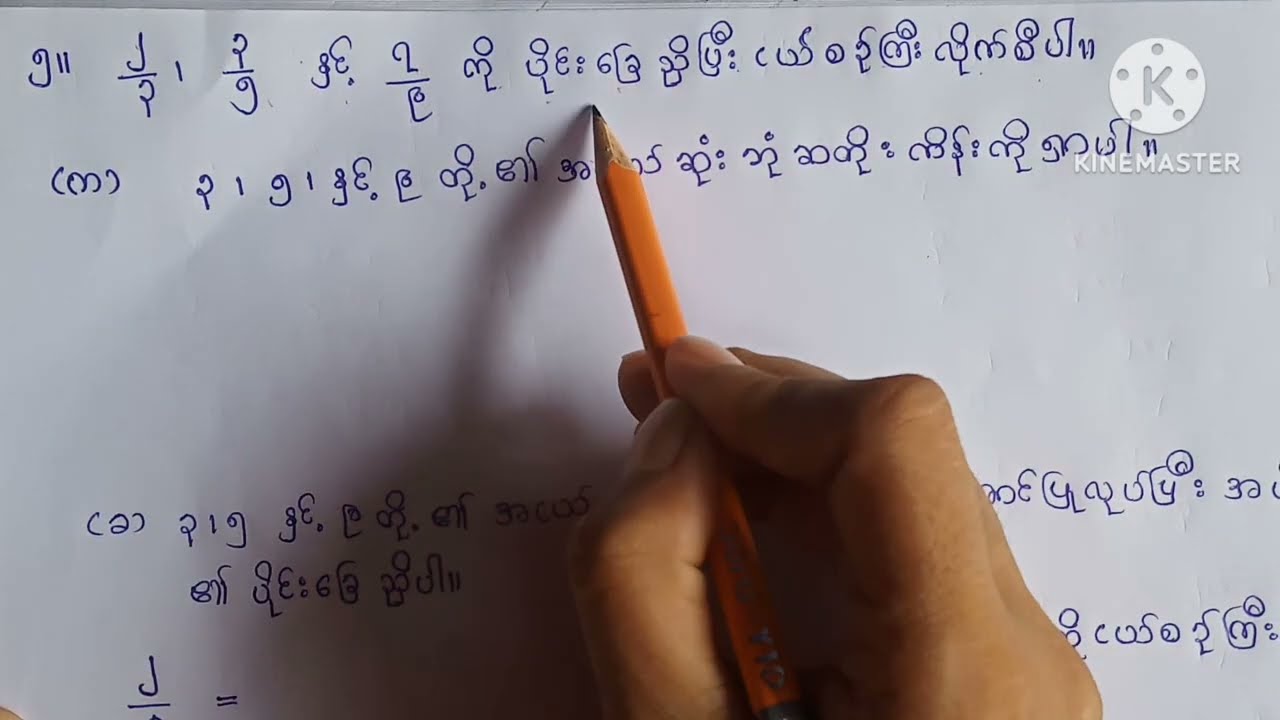 ၅။ ၂/၃ ၊ ၃/၅ နှင့် ၇/၉ ကို ပိုင်းခြေညှိပြီး ငယ်စဉ်ကြီးလိုက်စီပါ။
KINEMASTER
(က) ၃ ၊ ၅ ၊ နှင့် ၉ တို့၏ ဆုံးဘုံဆတိုးကိန်းကို ရှာပါ။
(ခ) ၃ ၊ ၅ နှင့် ၉ တို့၏ အငယ် ပြုလုပ်ပြီး
၏ ပိုင်းခြေညှိပါ။
ငယ်စဉ်ကြီး
၂ =